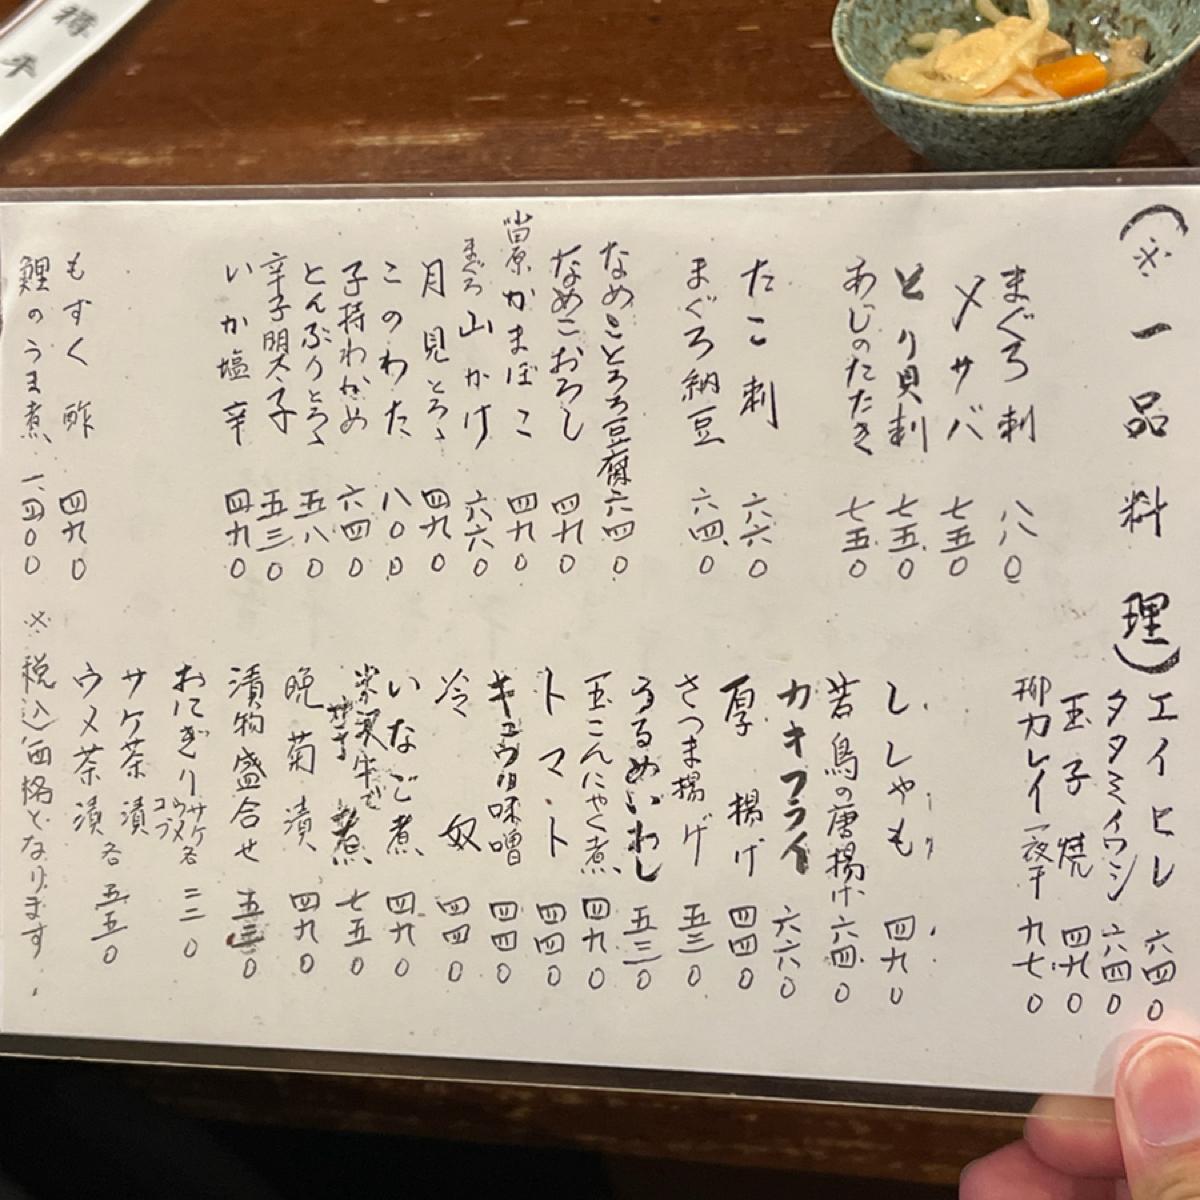 (※一品料理)
まぐろ刺 八八0
〆サバ 七五0
とり貝刺 七五0
あじのたたき 七五0
たこ刺 六六0
まぐろ納豆 六四0
なめことろろ豆腐 六四0
なめこおろし 四九0
かまぼこ 四九0
まぐろ山かけ 六六0
月見とろろ 四九0
このわた 八00
子持わかめ 六四0
とんぶりとろろ 五八0
辛子明太子 五三0
いか塩辛 四九0
もずく酢 四九0
鯉のうま煮 一、四00
エイヒレ 六四0
タタミイワシ 六四0
玉子焼 四九0
柳カレイ一夜干 九七0
ししゃも 四九0
若鳥の唐揚げ 六四0
カキフライ 六六0
厚揚げ 四四0
さつま揚げ 五三0
うるめいわし 五三0
玉こんにゃく煮 四九0
トマト 四四0
キュウリ味噌 四四0
冷奴 四四0
いなご煮 四九0
米沢牛 煮 七五0
晩菊漬 四九0
漬物盛合せ 五三0
おにぎり サケ ウメ コブ 各 三三0
サケ茶漬
ウメ茶漬 各 五五0
※税込価格となります.